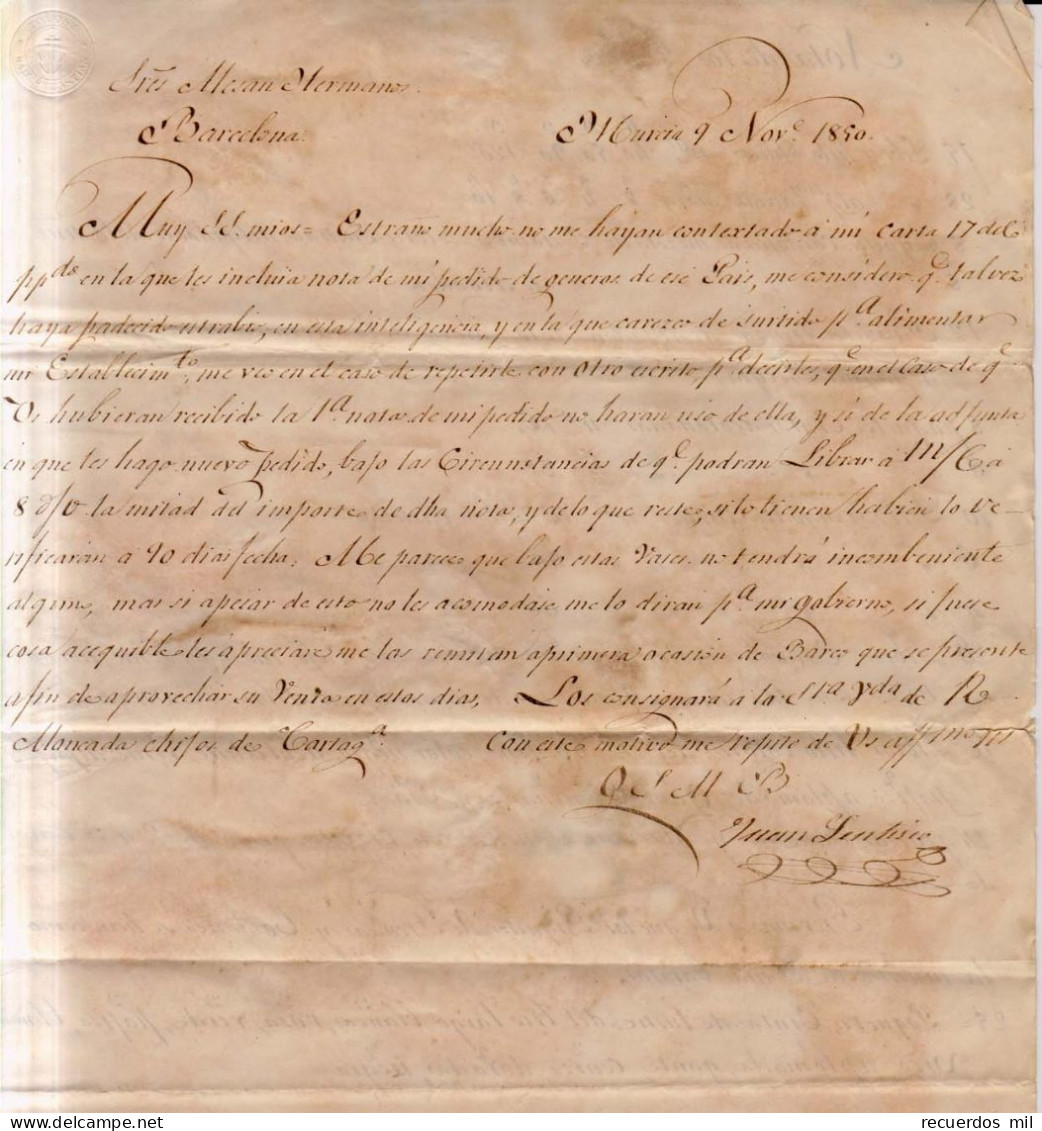 Sres Mesan Hermanos.
Barcelona. Murcia 9 Nove. 1850.
Muy SS. mios = Estraño mucho no me hayan contextado a mi carta 17 del
ppdo en la que les incluia nota de mi pedido de generos de ese Pais, me considero qe. talvez
haya padecido estrabio, en esta inteligencia, y en la que carezco de surtido pa. alimentar
mi Establecimto, me veo en el caso de repetirle con otro escrito pa. decirles, qe en el caso de qe
Vs hubieran recibido la 1a nota de mi pedido no haran uso de ella, y si de la adjunta
en que les hago nuevo pedido, bajo las Circunstancias de qe. podran Librar a m/C a
8 d/v la mitad del importe de dha nota, y de lo que reste, si lo tienen habien lo ve-
rificaran a 90 dias fecha. Me parece que bajo estas Vases no tendrá incombeniente
alguno, mas si apesar de esto no les acomodase me lo diran pa. mi gobierno, si fuese
cosa acequible les apreciare me las remitan aprimera ocasion de Barco que se presente
afin de aprovechar su Venta en estos dias, Los consignará a la Sra Vda de R
Moncada e hijos de Cartaga. Con este motivo me repito de Vs affmo
Q S M B
Juan Lentisco
recuerdos mil